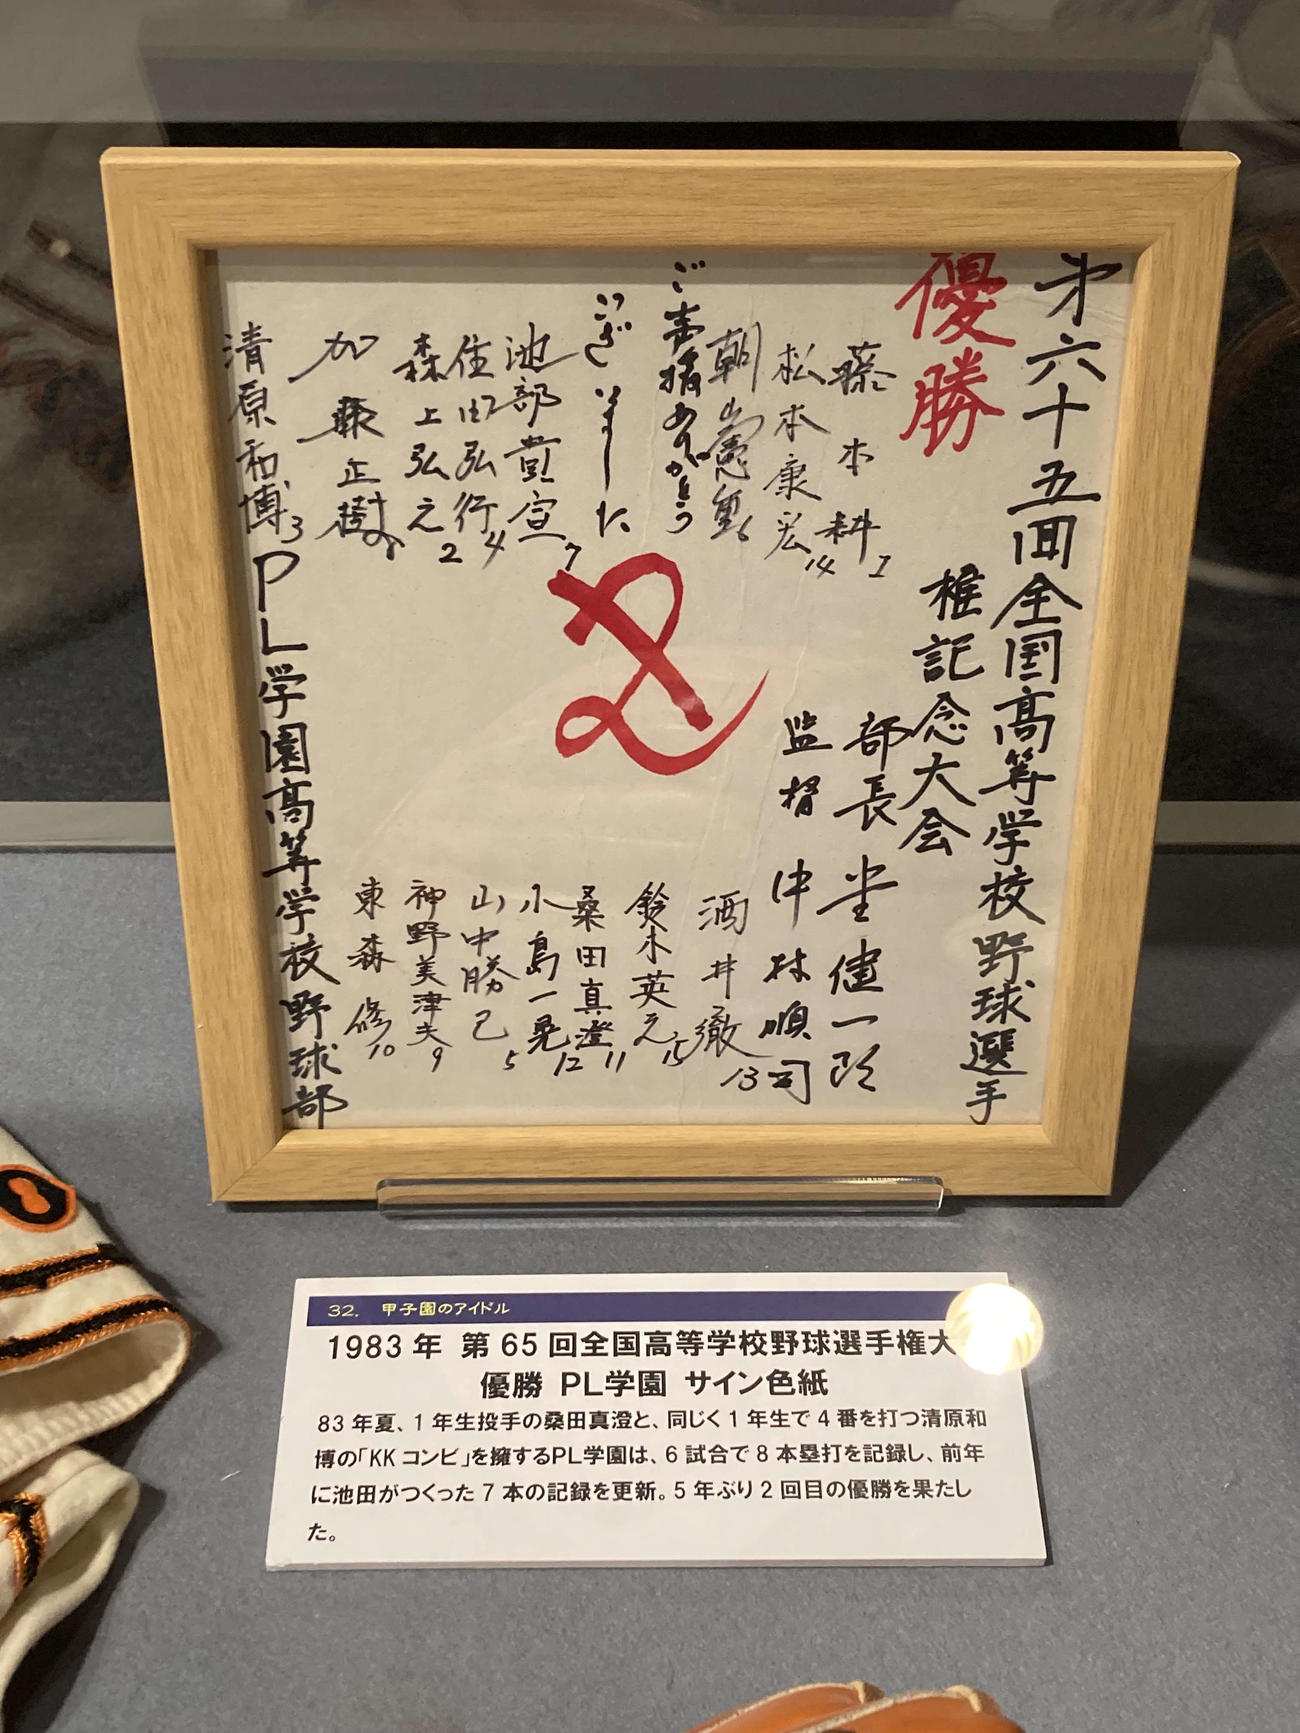 第六十五回全国高等学校野球選手
権記念大会
優勝
部長 堂健一郎
監督 中村順司
藤本耕 1
松本康宏 14
朝山憲重 6
ご声援ありがとう
ございました
池部豊宣 7
住田弘行 4
森上弘之 2
加藤正樹 8
清原和博 3
酒井徹 13
鈴木英之 15
桑田真澄 11
小島一晃 12
山中勝己 5
神野美津夫 9
東森修 10
PL学園高等学校野球部
PL
32. 甲子園のアイドル
1983年 第65回全国高等学校野球選手権大
優勝 PL学園 サイン色紙
83年夏、1年生投手の桑田真澄と、同じく1年生で4番を打つ清原和
博の「KKコンビ」を擁するPL学園は、6試合で8本塁打を記録し、前年
に池田がつくった7本の記録を更新。5年ぶり2回目の優勝を果たし
た。